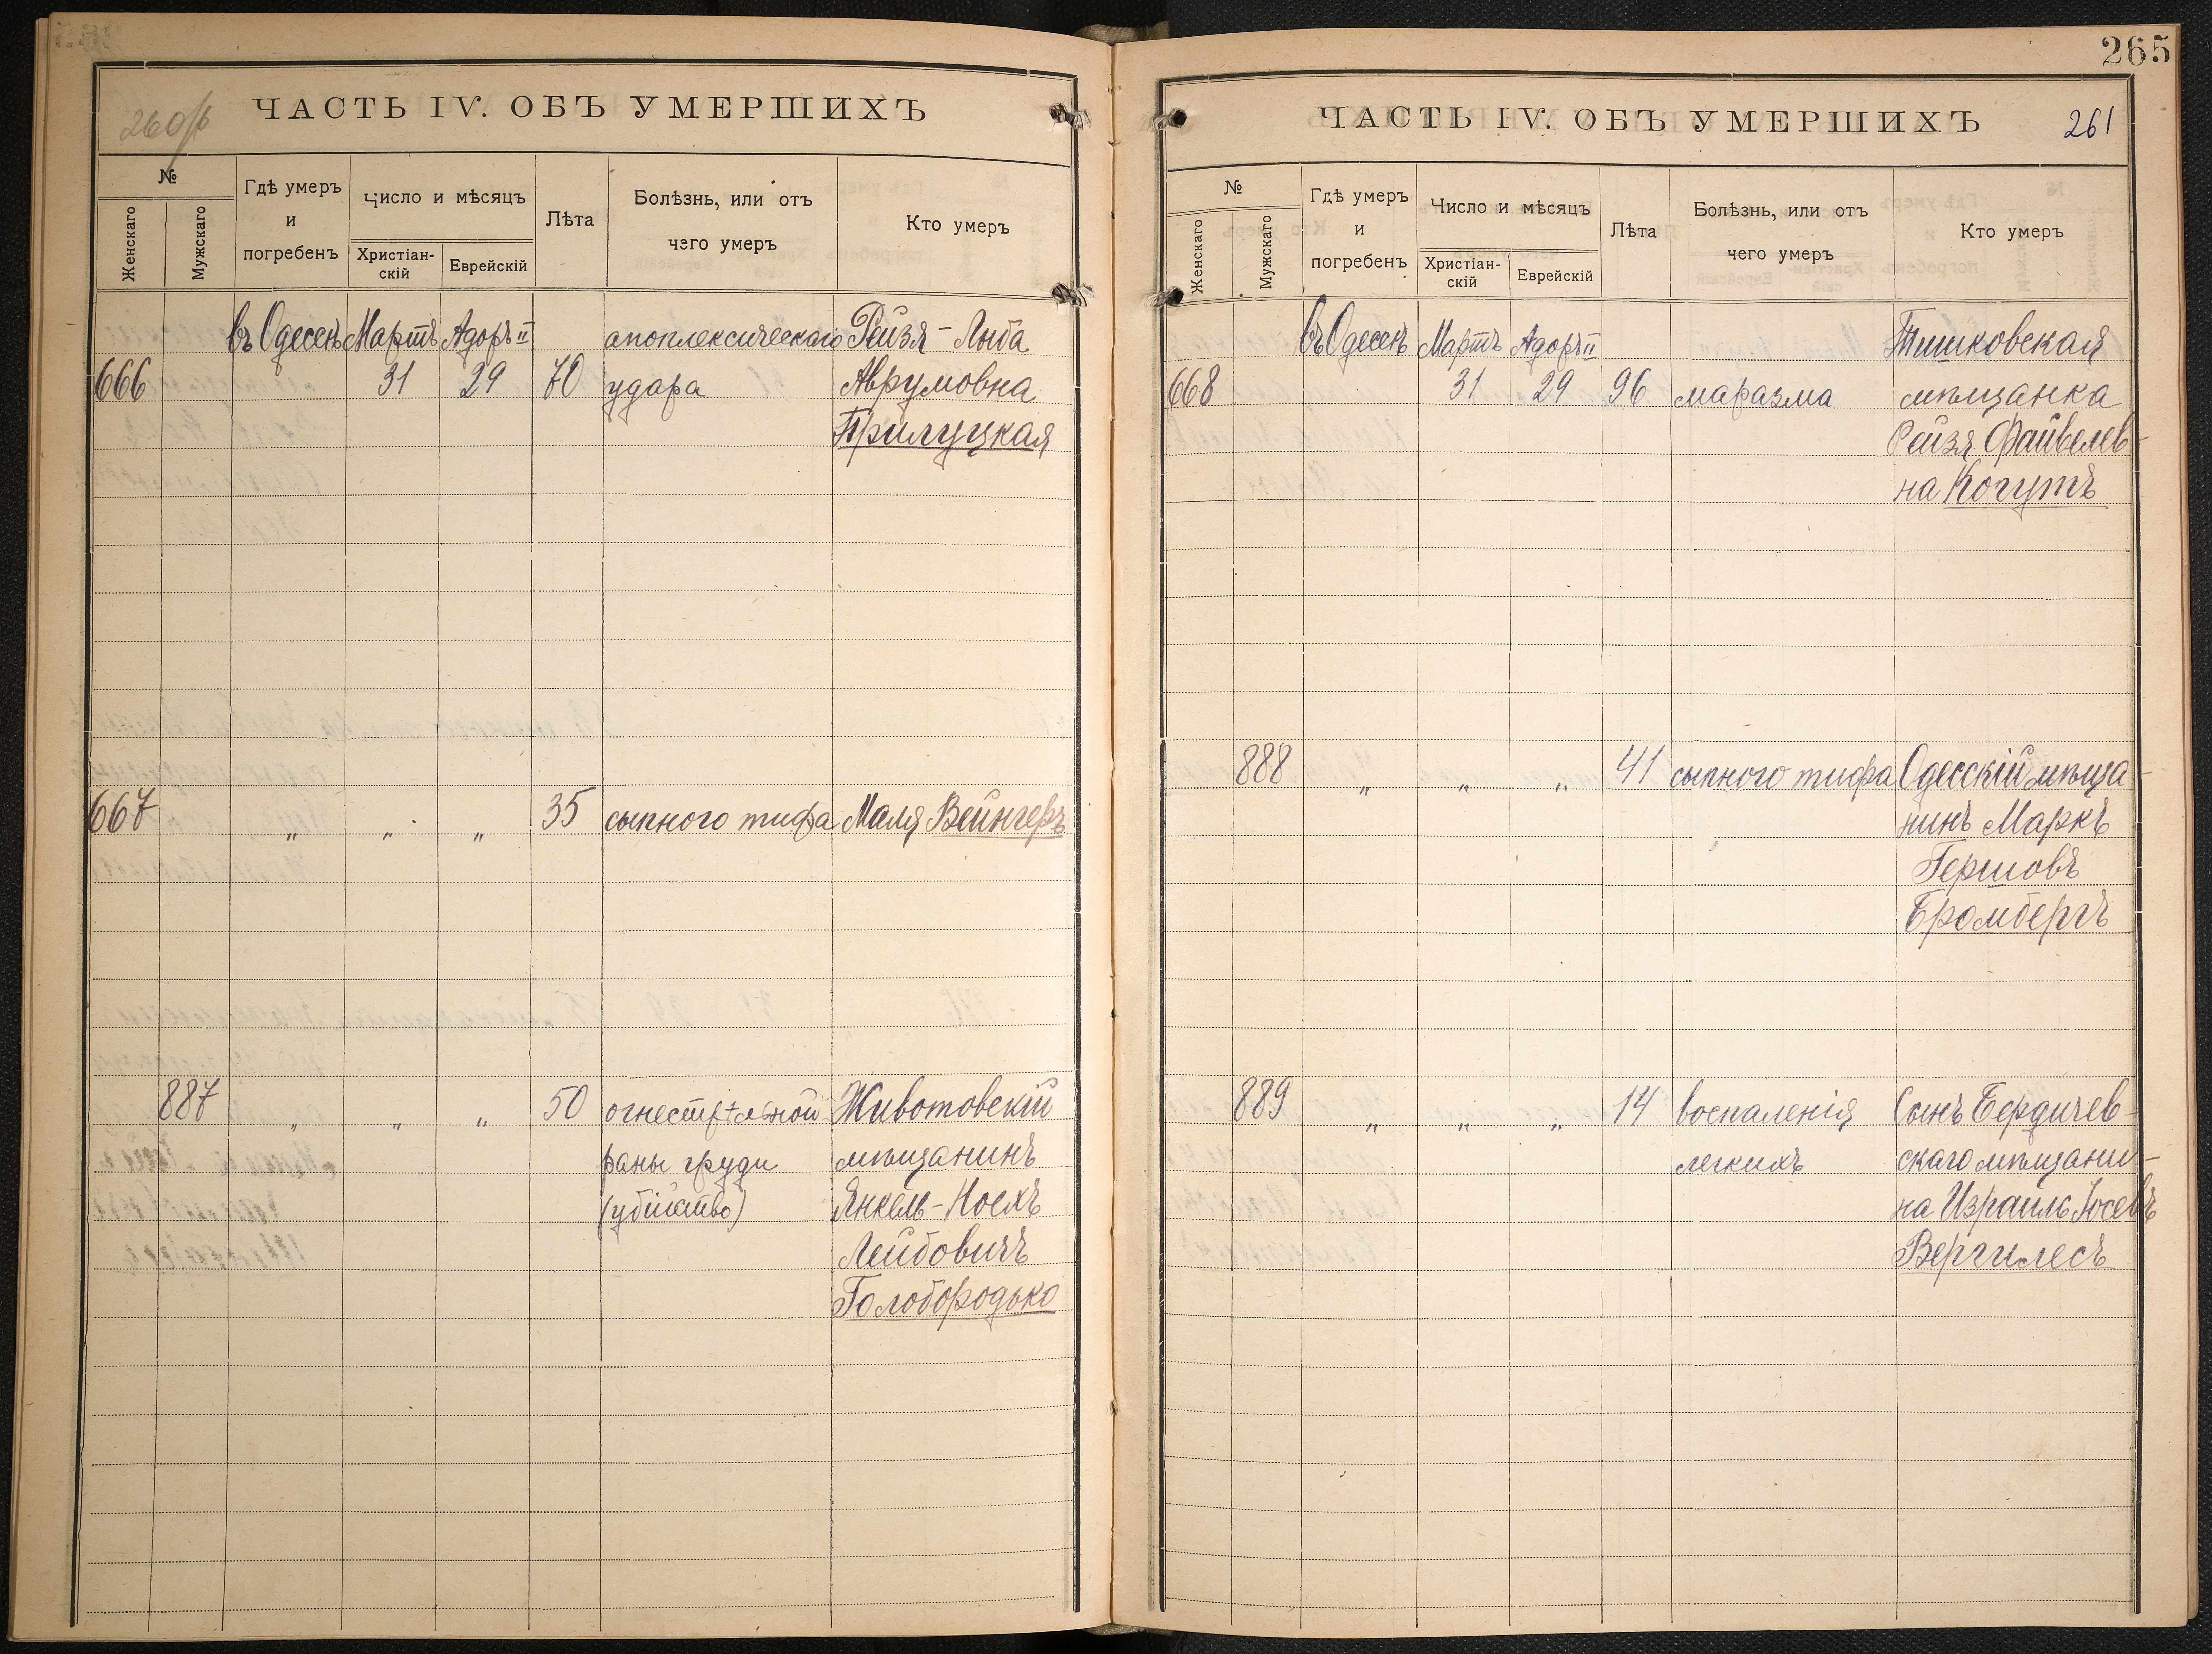 260об
ЧАСТЬ IV. ОБЪ УМЕРШИХЪ
№
Женскаго
Мужскаго
Гдѣ умеръ
и
погребенъ
Число и мѣсяцъ
Христіан-
скій
Еврейскій
Лѣта
Болѣзнь, или отъ
чего умеръ
Кто умеръ
въ Одессѣ Мартъ Адоръ II апоплексическаго Рейзя - Люба
666 31 29 70 удара Аврумовна
Прилуцкая
667 " " " 35 сыпного тифа Маля Вейнгеръ
887 " " " 50 огнестрѣльной Животовскій
раны груди мѣщанинъ
(убійство) Янкель - Ноехъ
Лейбовичъ
Голобородько
265
ЧАСТЬ IV. ОБЪ УМЕРШИХЪ
261
№
Женскаго
Мужскаго
Гдѣ умеръ
и
погребенъ
Число и мѣсяцъ
Христіан-
скій
Еврейскій
Лѣта
Болѣзнь, или отъ
чего умеръ
Кто умеръ
въ Одессѣ Мартъ Адоръ II Тишковская
668 31 29 96 маразма мѣщанка
Рейзя Файвелев-
на Когутъ
888 " " " 41 сыпного тифа Одесскій мѣща-
нинъ Маркъ
Гершовъ
Бромбергъ
889 " " " 14 воспаленія Сынъ Бердичев-
легкихъ скаго мѣщани-
на Израиль Іосевъ
Вергилесъ